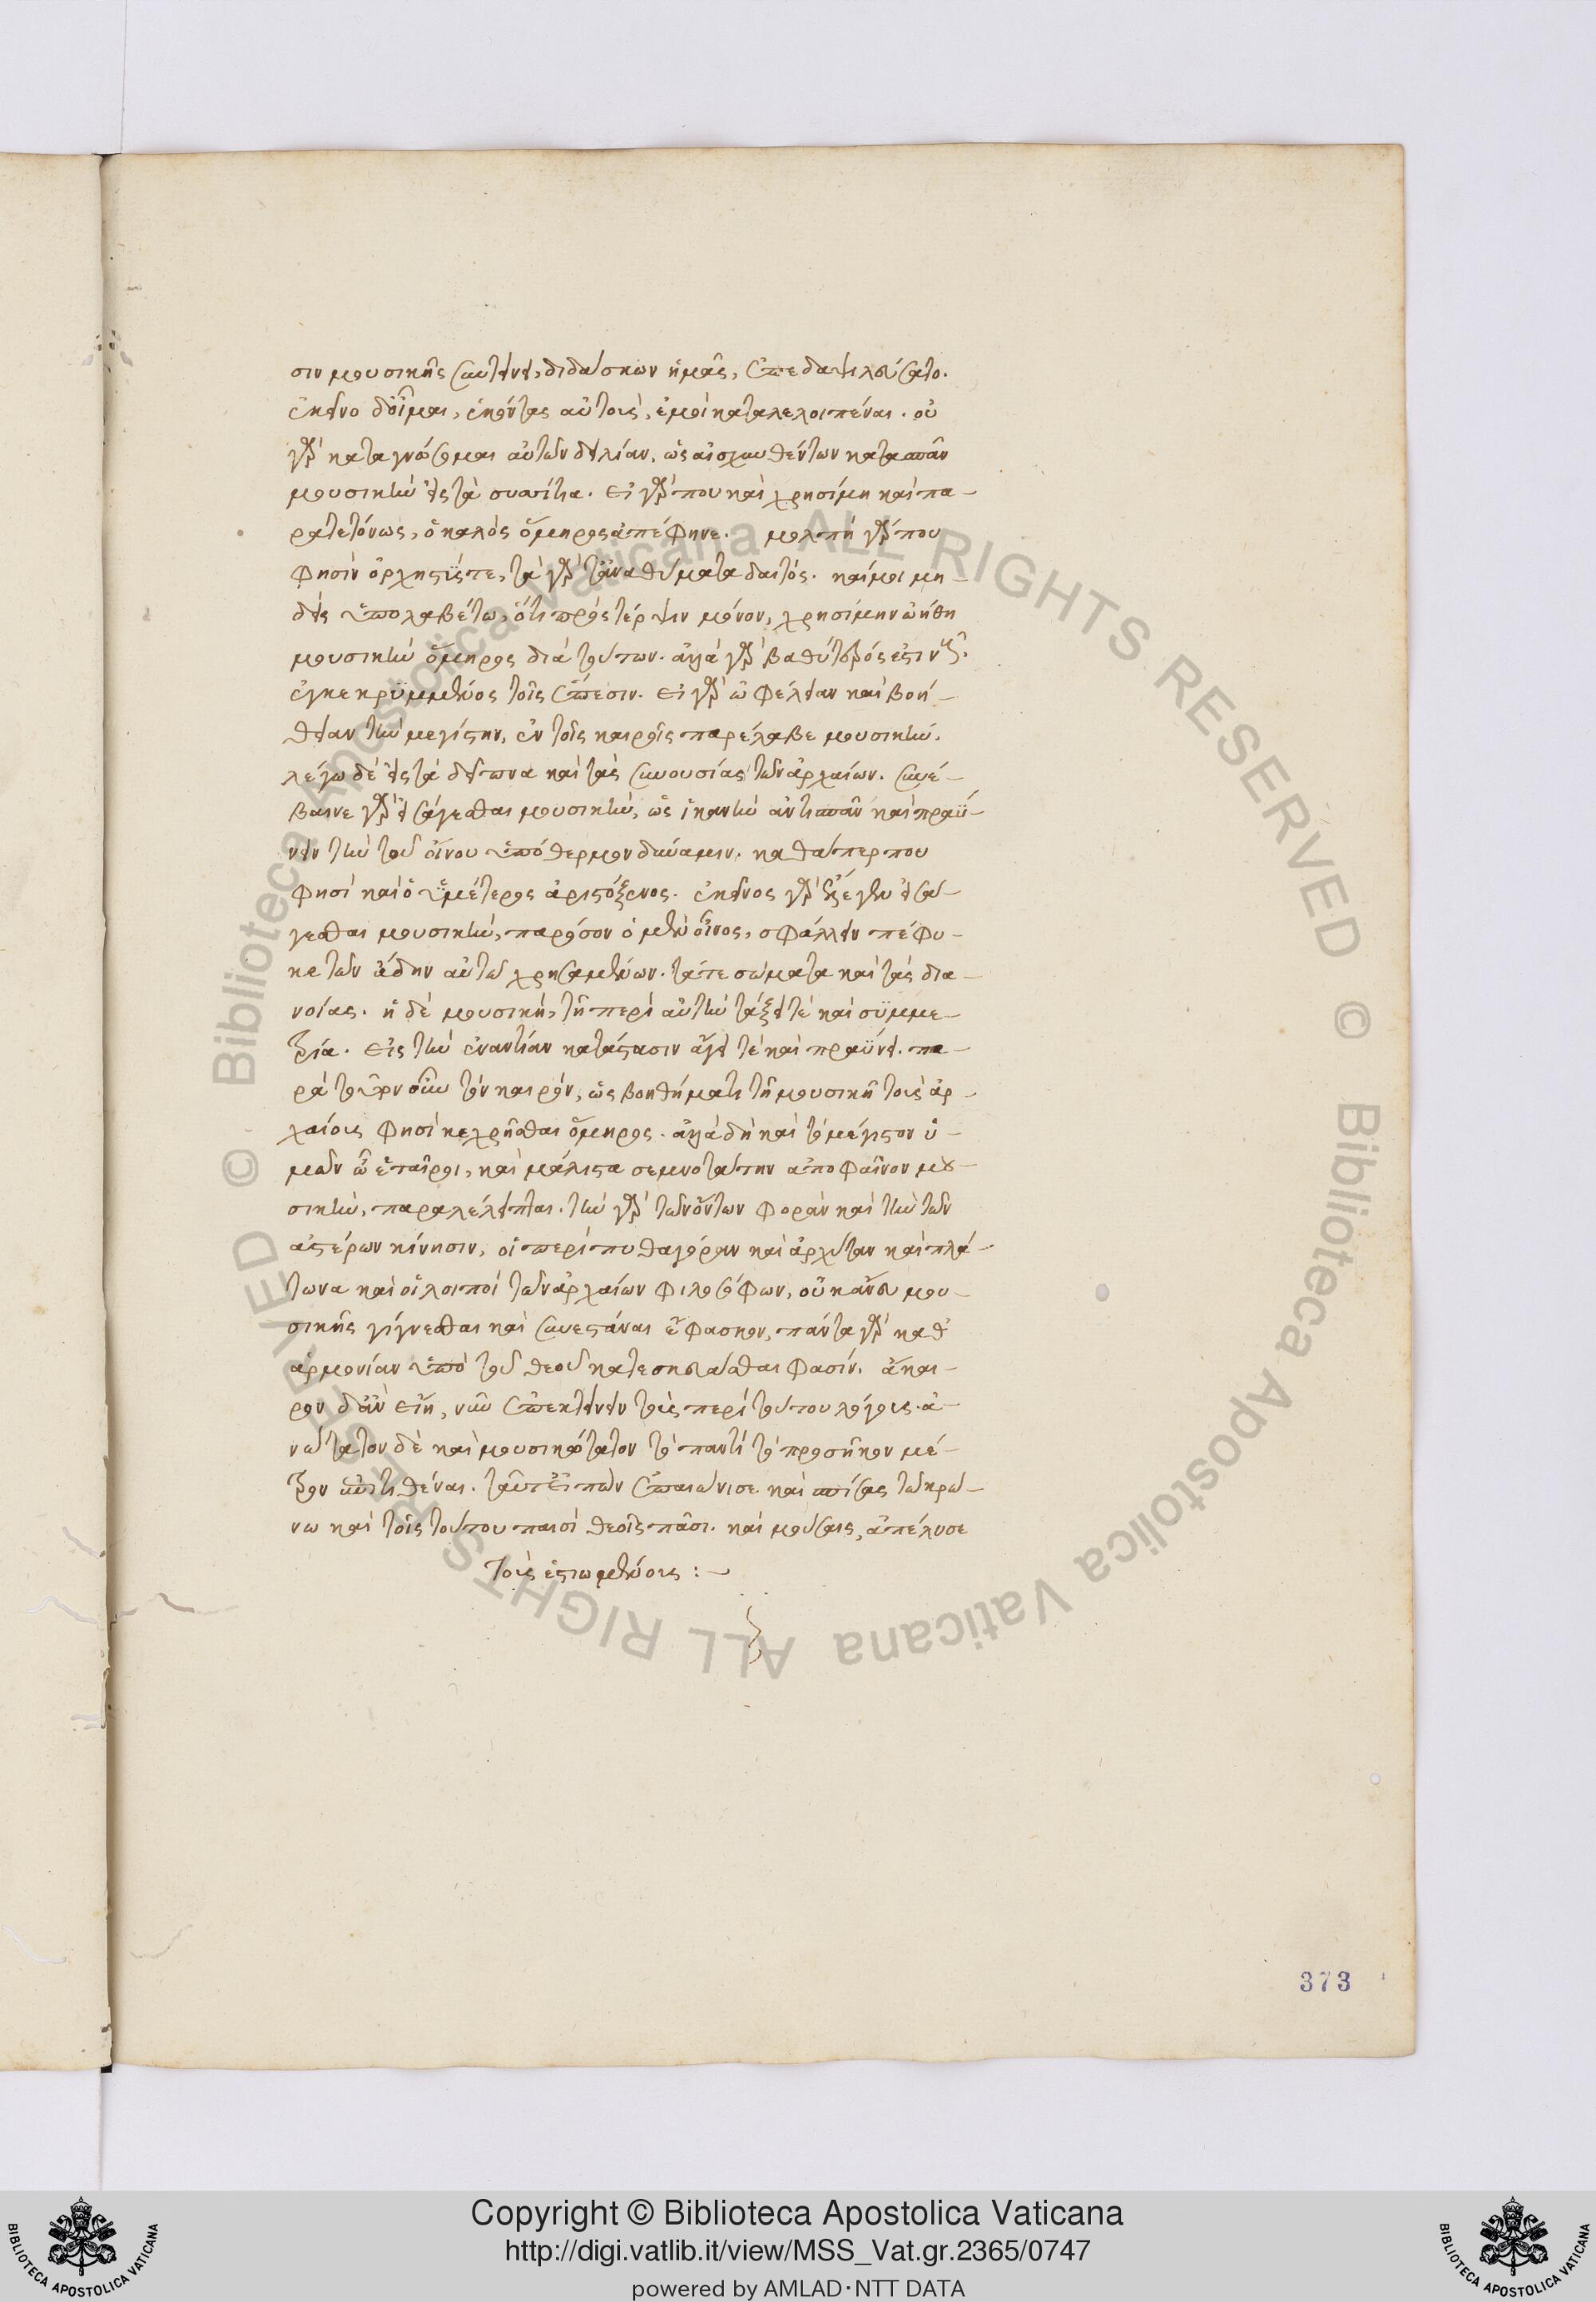 σιν μουσικῆς συντείνει, διδάσκων ἡμᾶς, ἐπεδαψιλεύσατο.
ἐκεῖνο δ' οἶμαι, ἑκόντας αὐτοὺς, ἐμοὶ καταλελοιπέναι. οὐ
γὰρ καταγνώσομαι αὐτῶν δειλίαν, ὡς αἰσχυνθέντων κατασπᾶν
μουσικὴν εἰς τὰ συσσίτια. εἰ γάρ που καὶ χρησίμη καὶ πα-
ρατετόνως, ὁ καλὸς ὅμηρος ἀπέφηνε. μολπή γάρ που
φησὶν ὀρχηστύς τε, τὰ γάρ τ' ἀναθήματα δαιτός. καί μοι μη-
δεὶς ὑπολαβέτω, ὅτι πρὸς τέρψιν μόνον, χρησίμην ὠήθη
μουσικὴν ὅμηρος διὰ τούτων. ἀλλὰ γὰρ βαθύτερός ἐστι νοῦς
ἐγκεκρυμμένος τοῖς ἔπεσιν. εἰ γὰρ ὠφέλειαν καὶ βοή-
θειαν τὴν μεγίστην, ἐν τοῖς καιροῖς παρέλαβε μουσικήν.
λέγω δὲ εἰς τὰ δεῖπνα καὶ τὰς συνουσίας τῶν ἀρχαίων. συνέ-
βαινε γὰρ εἰσάγεσθαι μουσικήν, ὡς ἱκανὴν ἀντισπᾶν καὶ πραΰ-
νειν τὴν τοῦ οἴνου ὑπόθερμον δύναμιν. καθάπερ που
φησὶ καὶ ὁ ὑμέτερος ἀριστόξενος. ἐκεῖνος γὰρ ἔλεγεν εἰσά-
γεσθαι μουσικήν, παρόσον ὁ μὲν οἶνος, σφάλλειν πέφυ-
κε τῶν ἄδην αὐτῷ χρησαμένων. τά τε σώματα καὶ τὰς δια-
νοίας. ἡ δὲ μουσική, τῇ περὶ αὐτὴν τάξει τὲ καὶ συμμε-
τρία. εἰς τὴν ἐναντίαν κατάστασιν ἄγει τὲ καὶ πραΰνει. πα-
ρὰ τοῦτον οὖν τὸν καιρὸν, ὡς βοηθήματι τῇ μουσικῇ τοὺς ἀρ-
χαίους φησὶ κεχρῆσθαι ὅμηρος. ἀλλὰ δὴ καὶ τὸ μέγιστον ὑ-
μῶν ὦ ἑταῖροι, καὶ μάλιστα σεμνοτάτην ἀποφαῖνον μου-
σικήν, παραλέλειπται. τὴν γὰρ τῶν ὄντων φορὰν καὶ τὴν τῶν
ἀστέρων κίνησιν, οἱ περὶ πυθαγόραν καὶ ἀρχύταν καὶ πλά-
τωνα καὶ οἱ λοιποὶ τῶν ἀρχαίων φιλοσόφων, οὐκ ἄνευ μου-
σικῆς γίγνεσθαι καὶ συνεστάναι ἔφασκον, πάντα γὰρ καθ'
ἁρμονίαν ὑπὸ τοῦ θεοῦ κατεσκευάσθαι φασίν. ἄκαι-
ρον δ' ἂν εἴη, νῦν ἐπεκτείνειν τοὺς περὶ τούτου λόγους. ἀ-
νώτατον δὲ καὶ μουσικώτατον τὸ παντὶ τὸ προσῆκον μέ-
τρον ἐπιτιθέναι. ταῦτ' εἰπὼν ἐπαιώνισε καὶ σπείσας τῷ κρό-
νῳ καὶ τοῖς τούτου παισὶ θεοῖς πᾶσι. καὶ μούσαις, ἀπέλυσε
τοὺς ἑστιωμένους :–
373
Copyright © Biblioteca Apostolica Vaticana
http://digi.vatlib.it/view/MSS_Vat.gr.2365/0747
powered by AMLAD·NTT DATA
BIBLIOTECA APOSTOLICA VATICANA
BIBLIOTECA APOSTOLICA VATICANA
© Biblioteca Apostolica Vaticana ALL RIGHTS RESERVED © Biblioteca Apostolica Vaticana ALL RIGHTS RESERVED